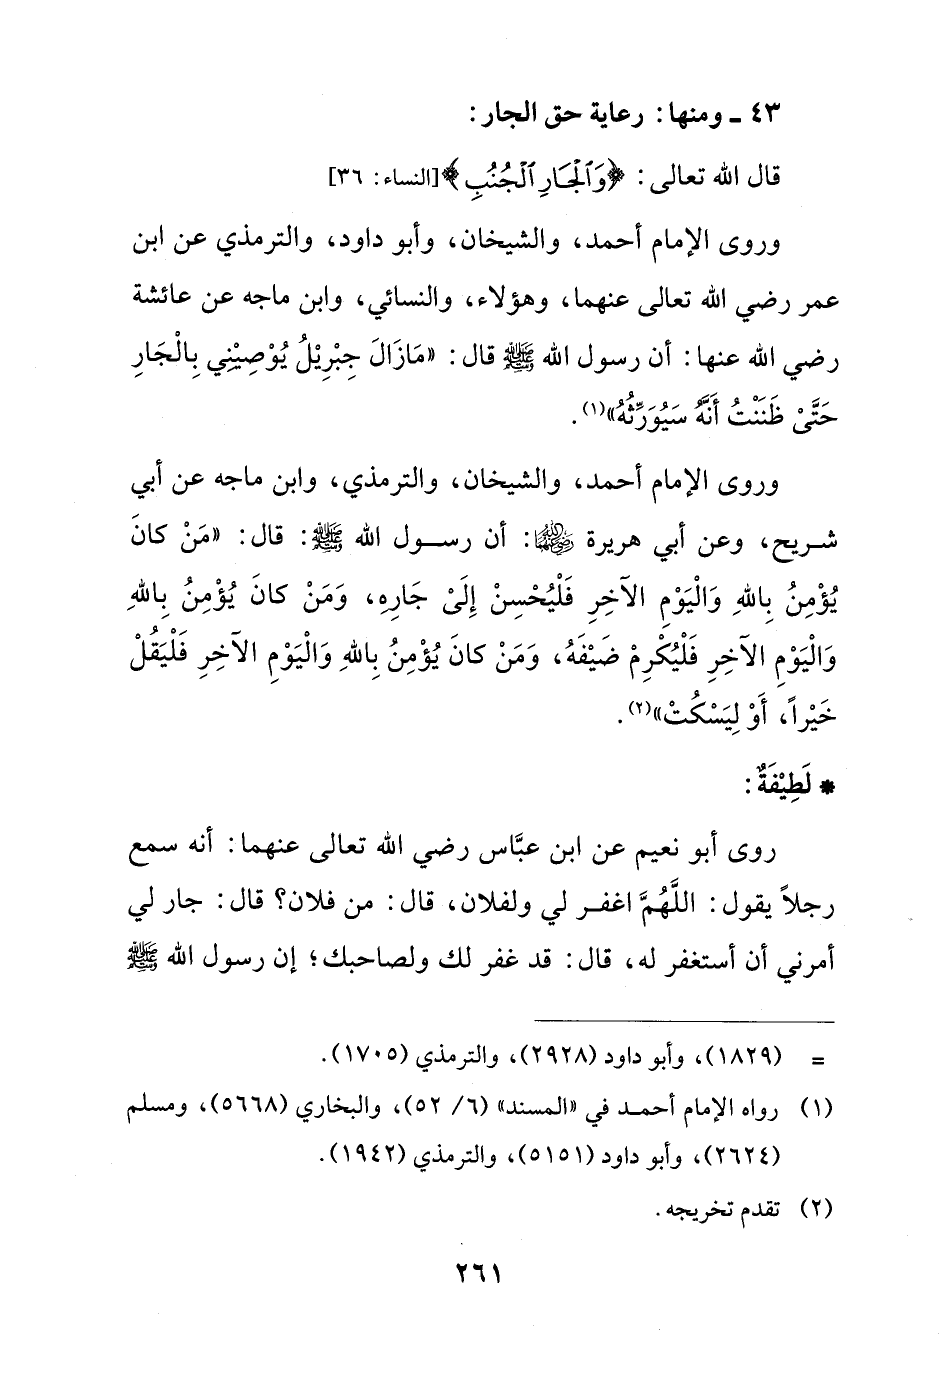 ٤٣ ـ ومنها: رعاية حق الجار:
قال الله تعالى: ﴿وَٱلْجَارِ ٱلْجُنُبِ﴾[النساء: ٣٦]
وروى الإمام أحمد، والشيخان، وأبو داود، والترمذي عن ابن
عمر رضي الله تعالى عنهما، وهؤلاء، والنسائي، وابن ماجه عن عائشة
رضي الله عنها: أن رسول الله ﷺ قال: «مَازَالَ جِبْرِيْلُ يُوْصِيْنِي بِالْجَارِ
حَتَّىْ ظَنَنْتُ أَنَّهُ سَيُوَرِّثُهُ»(١).
وروى الإمام أحمد، والشيخان، والترمذي، وابن ماجه عن أبي
شريح، وعن أبي هريرة رضي الله عنهما: أن رسول الله ﷺ: قال: «مَنْ كانَ
يُؤْمِنُ بِاللهِ وَالْيَوْمِ الآخِرِ فَلْيُحْسِنْ إِلَىْ جَارِهِ، وَمَنْ كانَ يُؤْمِنُ بِاللهِ
وَالْيَوْمِ الآخِرِ فَلْيُكْرِمْ ضَيْفَهُ، وَمَنْ كانَ يُؤْمِنُ بِاللهِ وَالْيَوْمِ الآخِرِ فَلْيَقُلْ
خَيْراً، أَوْ لِيَسْكُتْ»(٢).
* لَطِيْفَةٌ:
روى أبو نعيم عن ابن عبَّاس رضي الله تعالى عنهما: أنه سمع
رجلاً يقول: اللَّهُمَّ اغفر لي ولفلان، قال: من فلان؟ قال: جار لي
أمرني أن أستغفر له، قال: قد غفر لك ولصاحبك؛ إن رسول الله ﷺ
= (١٨٢٩)، وأبو داود (٢٩٢٨)، والترمذي (١٧٠٥).
(١) رواه الإمام أحمد في «المسند» (٦/ ٥٢)، والبخاري (٥٦٦٨)، ومسلم
(٢٦٢٤)، وأبو داود (٥١٥١)، والترمذي (١٩٤٢).
(٢) تقدم تخريجه.
٢٦١